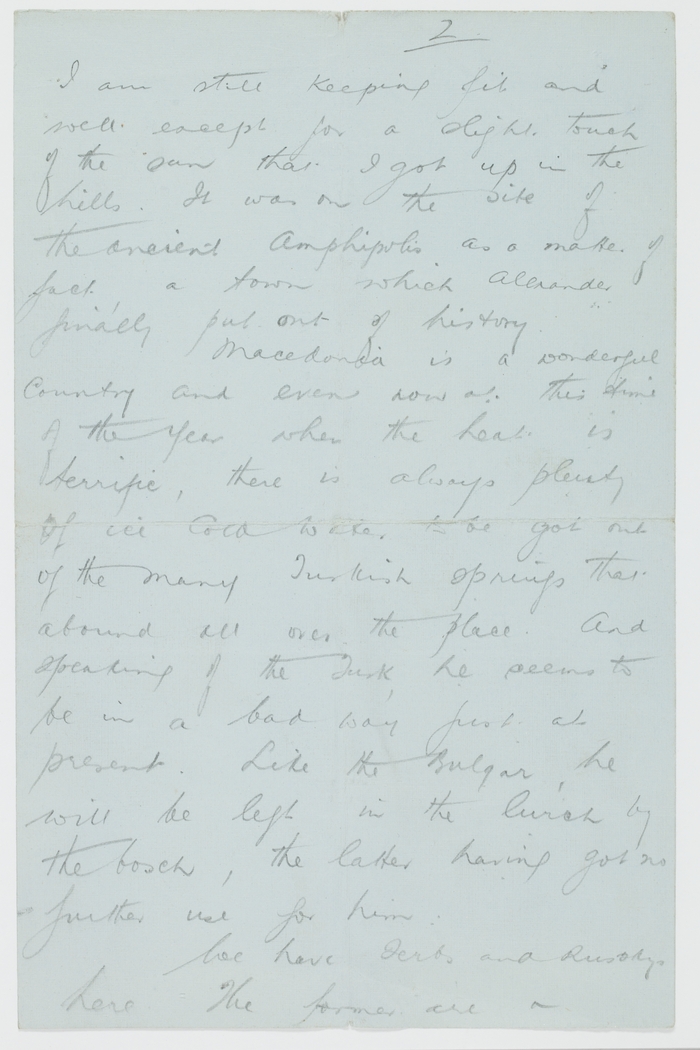 2
I am still keeping fit and
well except for a slight touch
of the sun that I got up in the
hills. It was on the site of
the ancient Amphipolis as a matter of
fact, a town which Alexander
finally put out of history.
Macedonia is a wonderful
Country and even now at this time
of the Year when the heat is
terrific, there is always plenty
of ice Cold water to be got out
of the many Turkish springs that
abound all over the place. And
speaking of the Turk, he seems to
be in a bad way just at
present. Like the Bulgar, he
will be left in the lurch by
the bosch, the latter having got no
further use for him.
We have Serbs and Russkys
here. The former are a